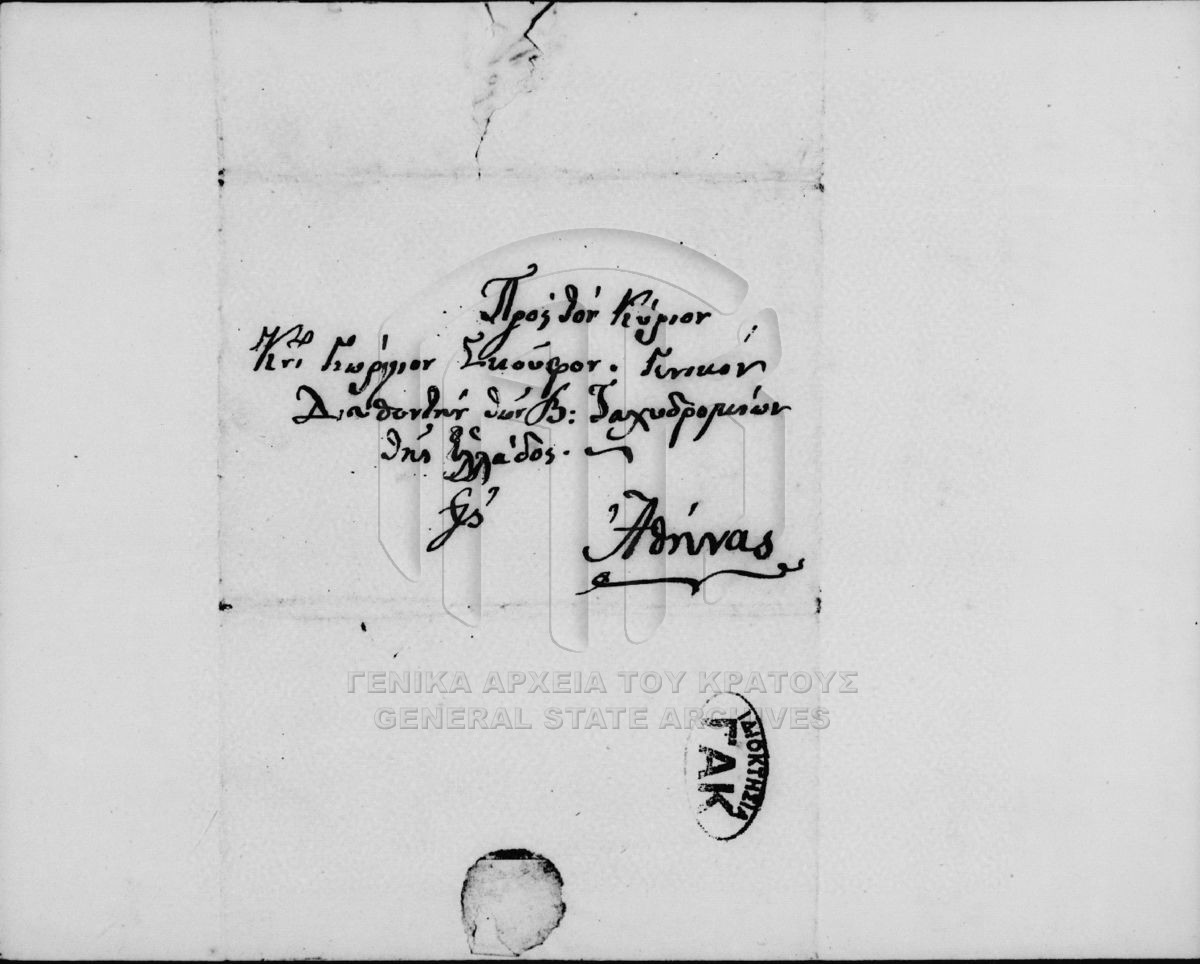 Πρὸς τὸν Κύριον
Κον Γεώργιον Σκούφον. Γενικὸν
Διευθυντὴν τῶν Β: Ταχυδρομείων
τῆς Ἑλλάδος.
Εἰς
Ἀθήνας
ΓΕΝΙΚΑ ΑΡΧΕΙΑ ΤΟΥ ΚΡΑΤΟΥΣ
GENERAL STATE ARCHIVES
ΙΔΙΟΚΤΗΣΙΑ
ΓΑΚ